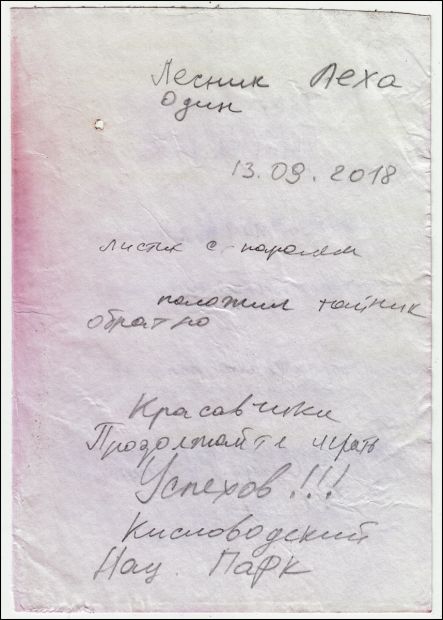 Лесник Леха
один
13.09.2018
листик с паролем
положил тайник
обратно
Красавчики
Продолжайте играть
Успехов!!!
Кисловодский
Нац. Парк